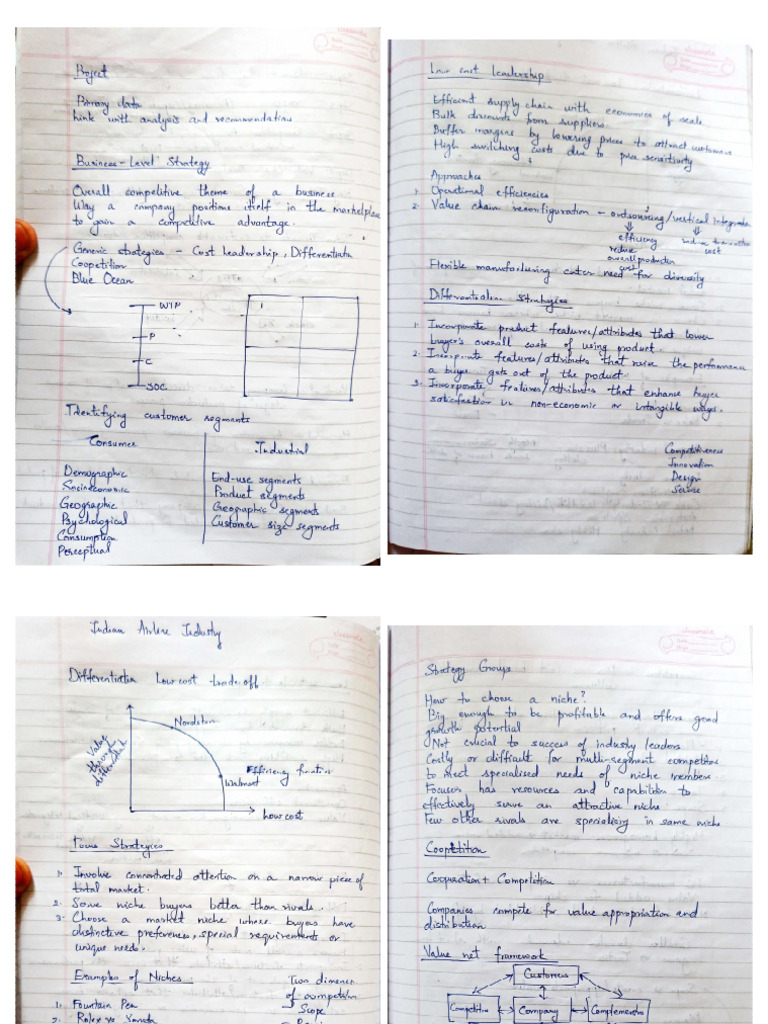 Project
Primary data
Link with analysis and recommendation
Business-Level Strategy
Overall competitive theme of a business
Way a company positions itself in the marketplace
to gain a competitive advantage.
Generic strategies - Cost leadership, Differentiation
Coopetition
Blue Ocean
WTP
P
C
SOC
1
Identifying customer segments
Consumer
Industrial
Demographic
Socioeconomic
Geographic
Psychological
Consumption
Perceptual
End-use segments
Product segments
Geographic segments
Customer size segments
classmate
Low cost Leadership
Efficient supply chain with economies of scale
Bulk discounts from suppliers.
Buffer margins by lowering prices to attract customers
High switching costs due to price sensitivity
Approaches
1. Operational efficiencies
2. Value chain reconfiguration - outsourcing/vertical integration
efficiency
reduce
overall production
cost
reduce transaction
cost
Flexible manufacturing cater need for diversity
Differentiation Strategies
1. Incorporate product features/attributes that lower
buyer's overall costs of using product.
2. Incorporate features/attributes that raise the performance
a buyer gets out of the product
3. Incorporate features/attributes that enhance buyer
satisfaction in non-economic or intangible ways.
Competitiveness
Innovation
Design
Service
classmate
Indian Airline Industry
Differentiation Low cost trade-off
Value
through
differentiation
Nordstrom
Efficiency frontier
Walmart
Low cost
Focus Strategies
1. Involve concentrated attention on a narrow piece of
total market.
2. Serve niche buyers better than rivals.
3. Choose a market niche where buyers have
distinctive preferences, special requirements or
unique needs.
Examples of Niches
1. Fountain Pen
2. Rolex vs
Two dimen
of competition
Scope
classmate
Strategy Groups
How to choose a niche?
Big enough to be profitable and offers good
growth potential
Not crucial to success of industry leaders
Costly or difficult for multi-segment competitors
to meet specialised needs of niche members
Focuser has resources and capabilities to
effectively serve an attractive niche
Few other rivals are specialising in same niche
Coopetition
Cooperation + Competition
Companies compete for value appropriation and
distribution
Value net framework
Customers
Competitors
Company
Complementors